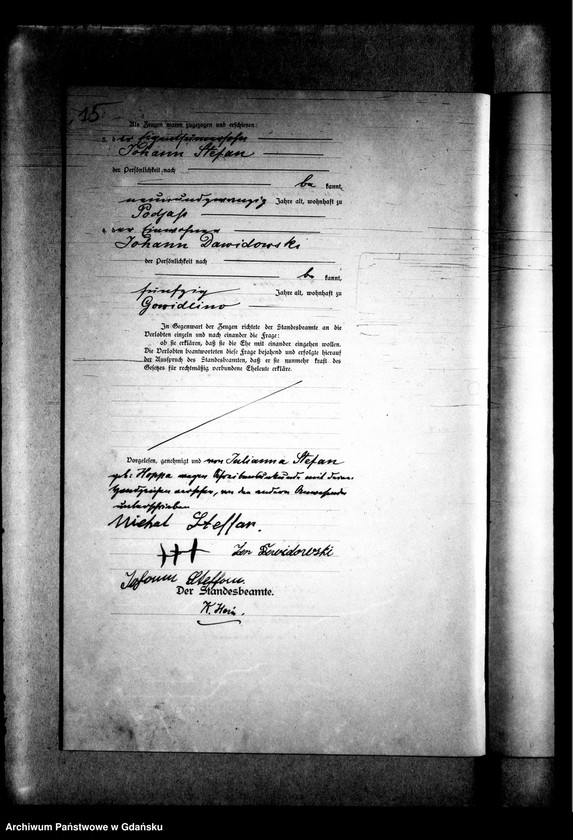 15
Als Zeugen waren zugezogen und erschienen:
3. der Eigenthümersohn
Johann Stefan
der Persönlichkeit nach
be kannt,
neunundzwanzig Jahre alt, wohnhaft zu
Podjaß
4. der Einwohner
Johann Dawidowski
der Persönlichkeit nach
be kannt,
fünfzig Jahre alt, wohnhaft zu
Gowidlino
In Gegenwart der Zeugen richtete der Standesbeamte an die
Verlobten einzeln und nach einander die Frage:
ob sie erklären, daß sie die Ehe mit einander eingehen wollen.
Die Verlobten beantworteten diese Frage bejahend und erfolgte hierauf
der Ausspruch des Standesbeamten, daß er sie nunmehr kraft des
Gesetzes für rechtmäßig verbundene Eheleute erkläre.
Vorgelesen, genehmigt und von Julianna Stefan
geb. Hoppa wegen Schreibensunkunde mit ihrem
Handzeichen versehen, von den anderen Anwesenden
unterschrieben
Michal Steffan.
+++ Jan Dawidowski
Johann Steffan.
Der Standesbeamte.
Archiwum Państwowe w Gdańsku